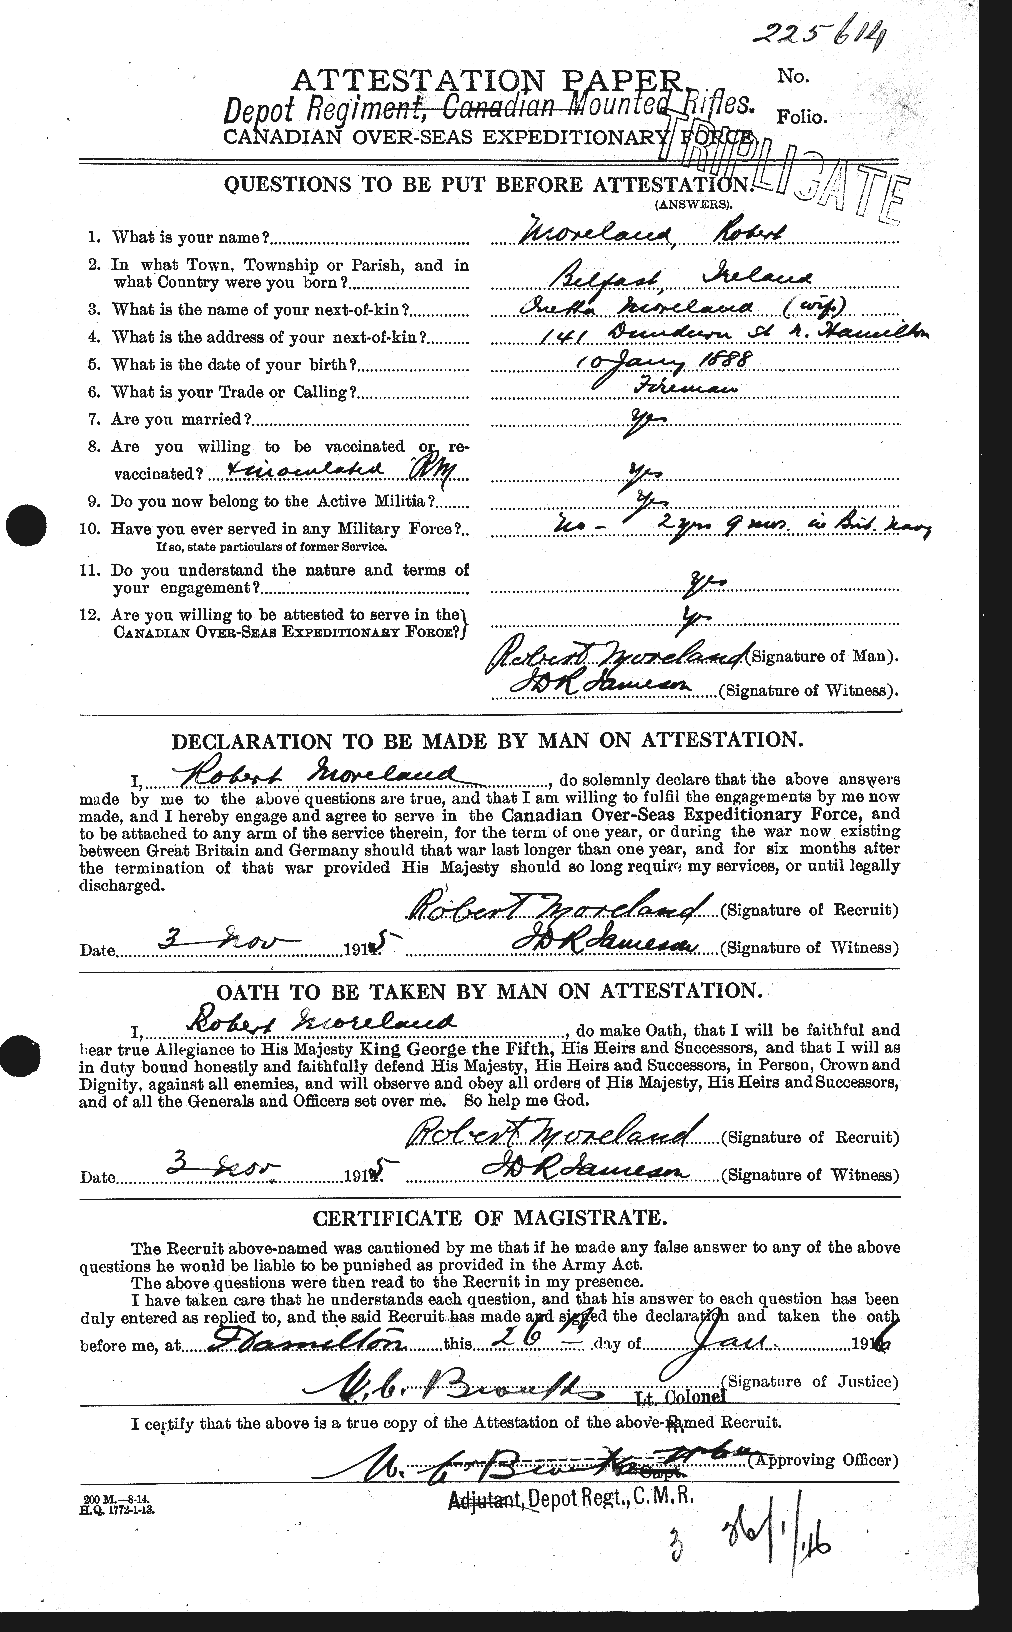 225614
ATTESTATION PAPER.
No.
Depot Regiment, Canadian Mounted Rifles.
Folio.
CANADIAN OVER-SEAS EXPEDITIONARY FORCE
TRIPLICATE
QUESTIONS TO BE PUT BEFORE ATTESTATION.
(ANSWERS).
1. What is your name? Moreland, Robert
2. In what Town, Township or Parish, and in
what Country were you born? Belfast, Ireland
3. What is the name of your next-of-kin? Moreland (wife)
4. What is the address of your next-of-kin? 141 Dundurn St N. Hamilton
5. What is the date of your birth? 10 Jany 1888
6. What is your Trade or Calling? Fireman
7. Are you married? Yes
8. Are you willing to be vaccinated or re-
vaccinated? + inoculated RM Yes
9. Do you now belong to the Active Militia? Yes
10. Have you ever served in any Military Force? No - 2 yrs 9 mos. in Brit. Navy
If so, state particulars of former Service.
11. Do you understand the nature and terms of
your engagement? Yes
12. Are you willing to be attested to serve in the
CANADIAN OVER-SEAS EXPEDITIONARY FORCE? Yes
Robert Moreland (Signature of Man).
JDR Jameson (Signature of Witness).
DECLARATION TO BE MADE BY MAN ON ATTESTATION.
I, Robert Moreland, do solemnly declare that the above answers
made by me to the above questions are true, and that I am willing to fulfil the engagements by me now
made, and I hereby engage and agree to serve in the Canadian Over-Seas Expeditionary Force, and
to be attached to any arm of the service therein, for the term of one year, or during the war now existing
between Great Britain and Germany should that war last longer than one year, and for six months after
the termination of that war provided His Majesty should so long require my services, or until legally
discharged.
Robert Moreland (Signature of Recruit)
Date 3 Nov 1915. JDR Jameson (Signature of Witness)
OATH TO BE TAKEN BY MAN ON ATTESTATION.
I, Robert Moreland, do make Oath, that I will be faithful and
bear true Allegiance to His Majesty King George the Fifth, His Heirs and Successors, and that I will as
in duty bound honestly and faithfully defend His Majesty, His Heirs and Successors, in Person, Crown and
Dignity, against all enemies, and will observe and obey all orders of His Majesty, His Heirs and Successors,
and of all the Generals and Officers set over me. So help me God.
Robert Moreland (Signature of Recruit)
Date 3 Nov. 1915. JDR Jameson (Signature of Witness)
CERTIFICATE OF MAGISTRATE.
The Recruit above-named was cautioned by me that if he made any false answer to any of the above
questions he would be liable to be punished as provided in the Army Act.
The above questions were then read to the Recruit in my presence.
I have taken care that he understands each question, and that his answer to each question has been
duly entered as replied to, and the said Recruit has made and signed the declaration and taken the oath
before me, at Hamilton this 26th day of Jan. 1916
(Signature of Justice)
Lt. Colonel
I certify that the above is a true copy of the Attestation of the above-named Recruit.
(Approving Officer)
Capt.
200 M.—8-14.
H.Q. 1772-1-13.
Adjutant, Depot Regt., C.M.R.
3 26/1/16